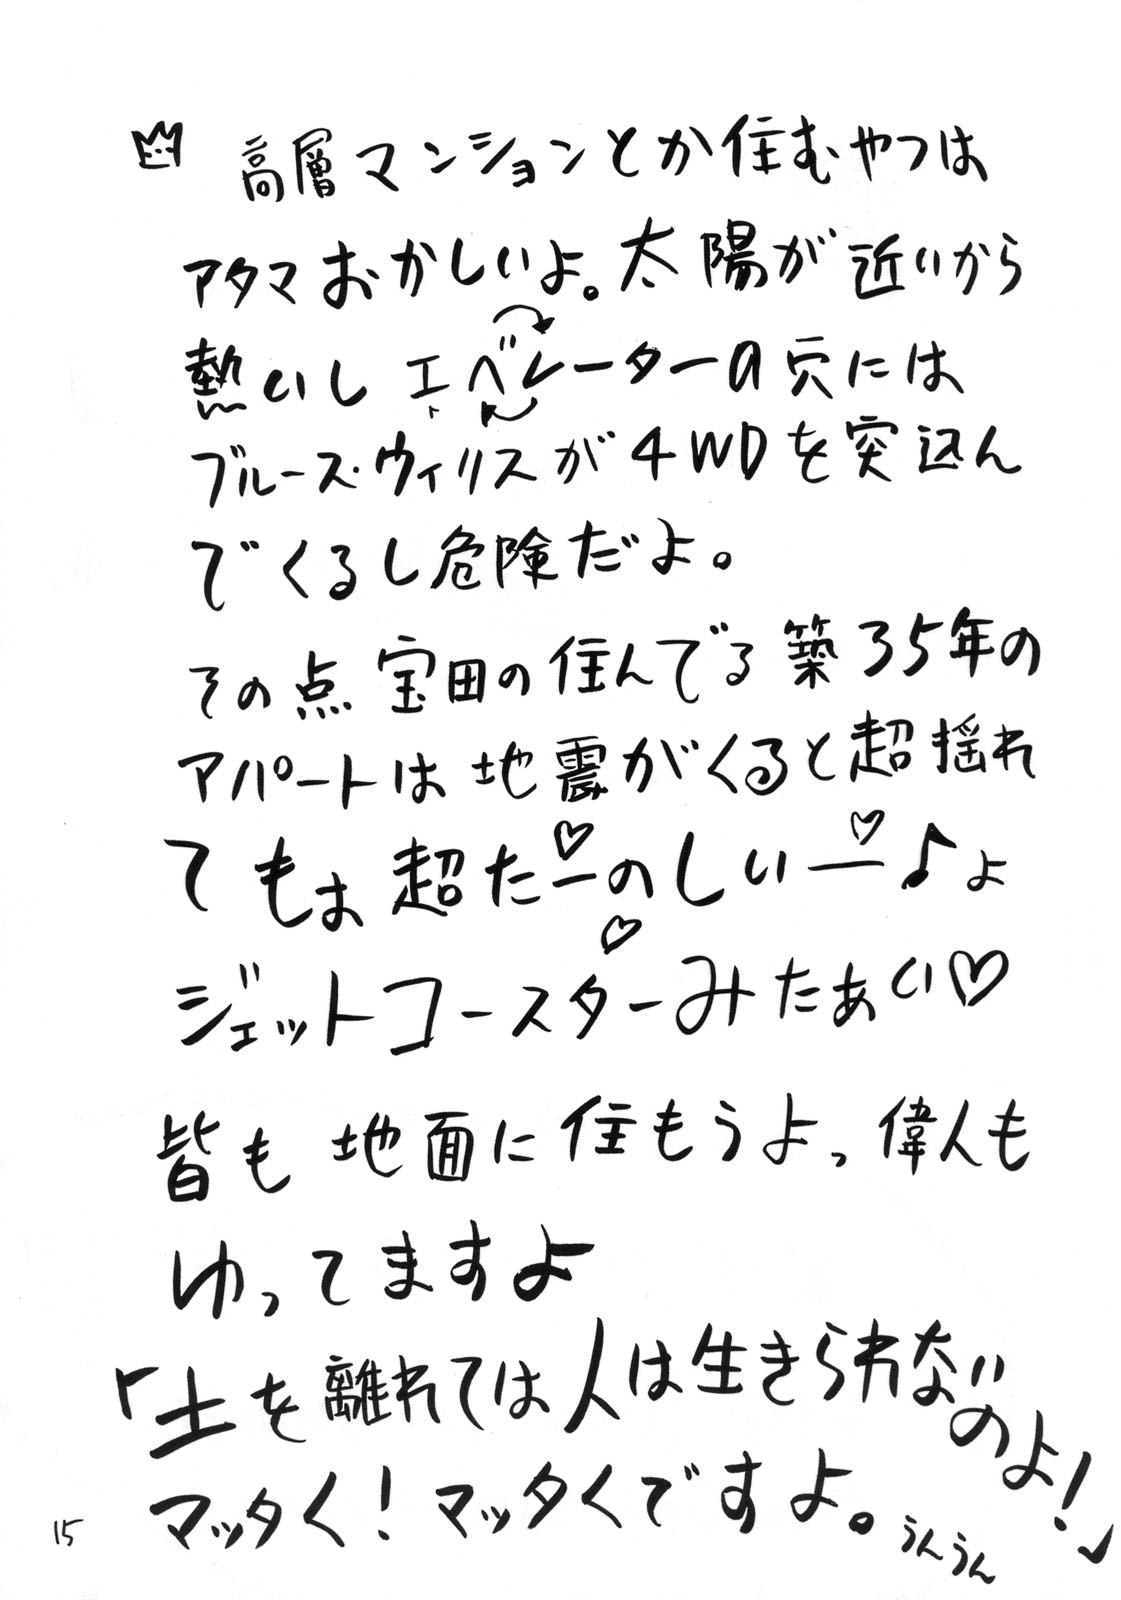 高層マンションとか住むやつは
アタマおかしいよ。太陽が近いから
熱いし エベレーターの穴には
ブルース・ウィリスが4WDを突込ん
でくるし危険だよ。
その点 宝田の住んでる築35年の
アパートは地震がくると超揺れ
てもぉ超たーのしいー♪よ
ジェットコースターみたぁい♡
皆も地面に住もうよっ 偉人も
ゆってますよ
「土を離れては人は生きられないのよ!」
マッタく!マッタくですよ。うんうん
15